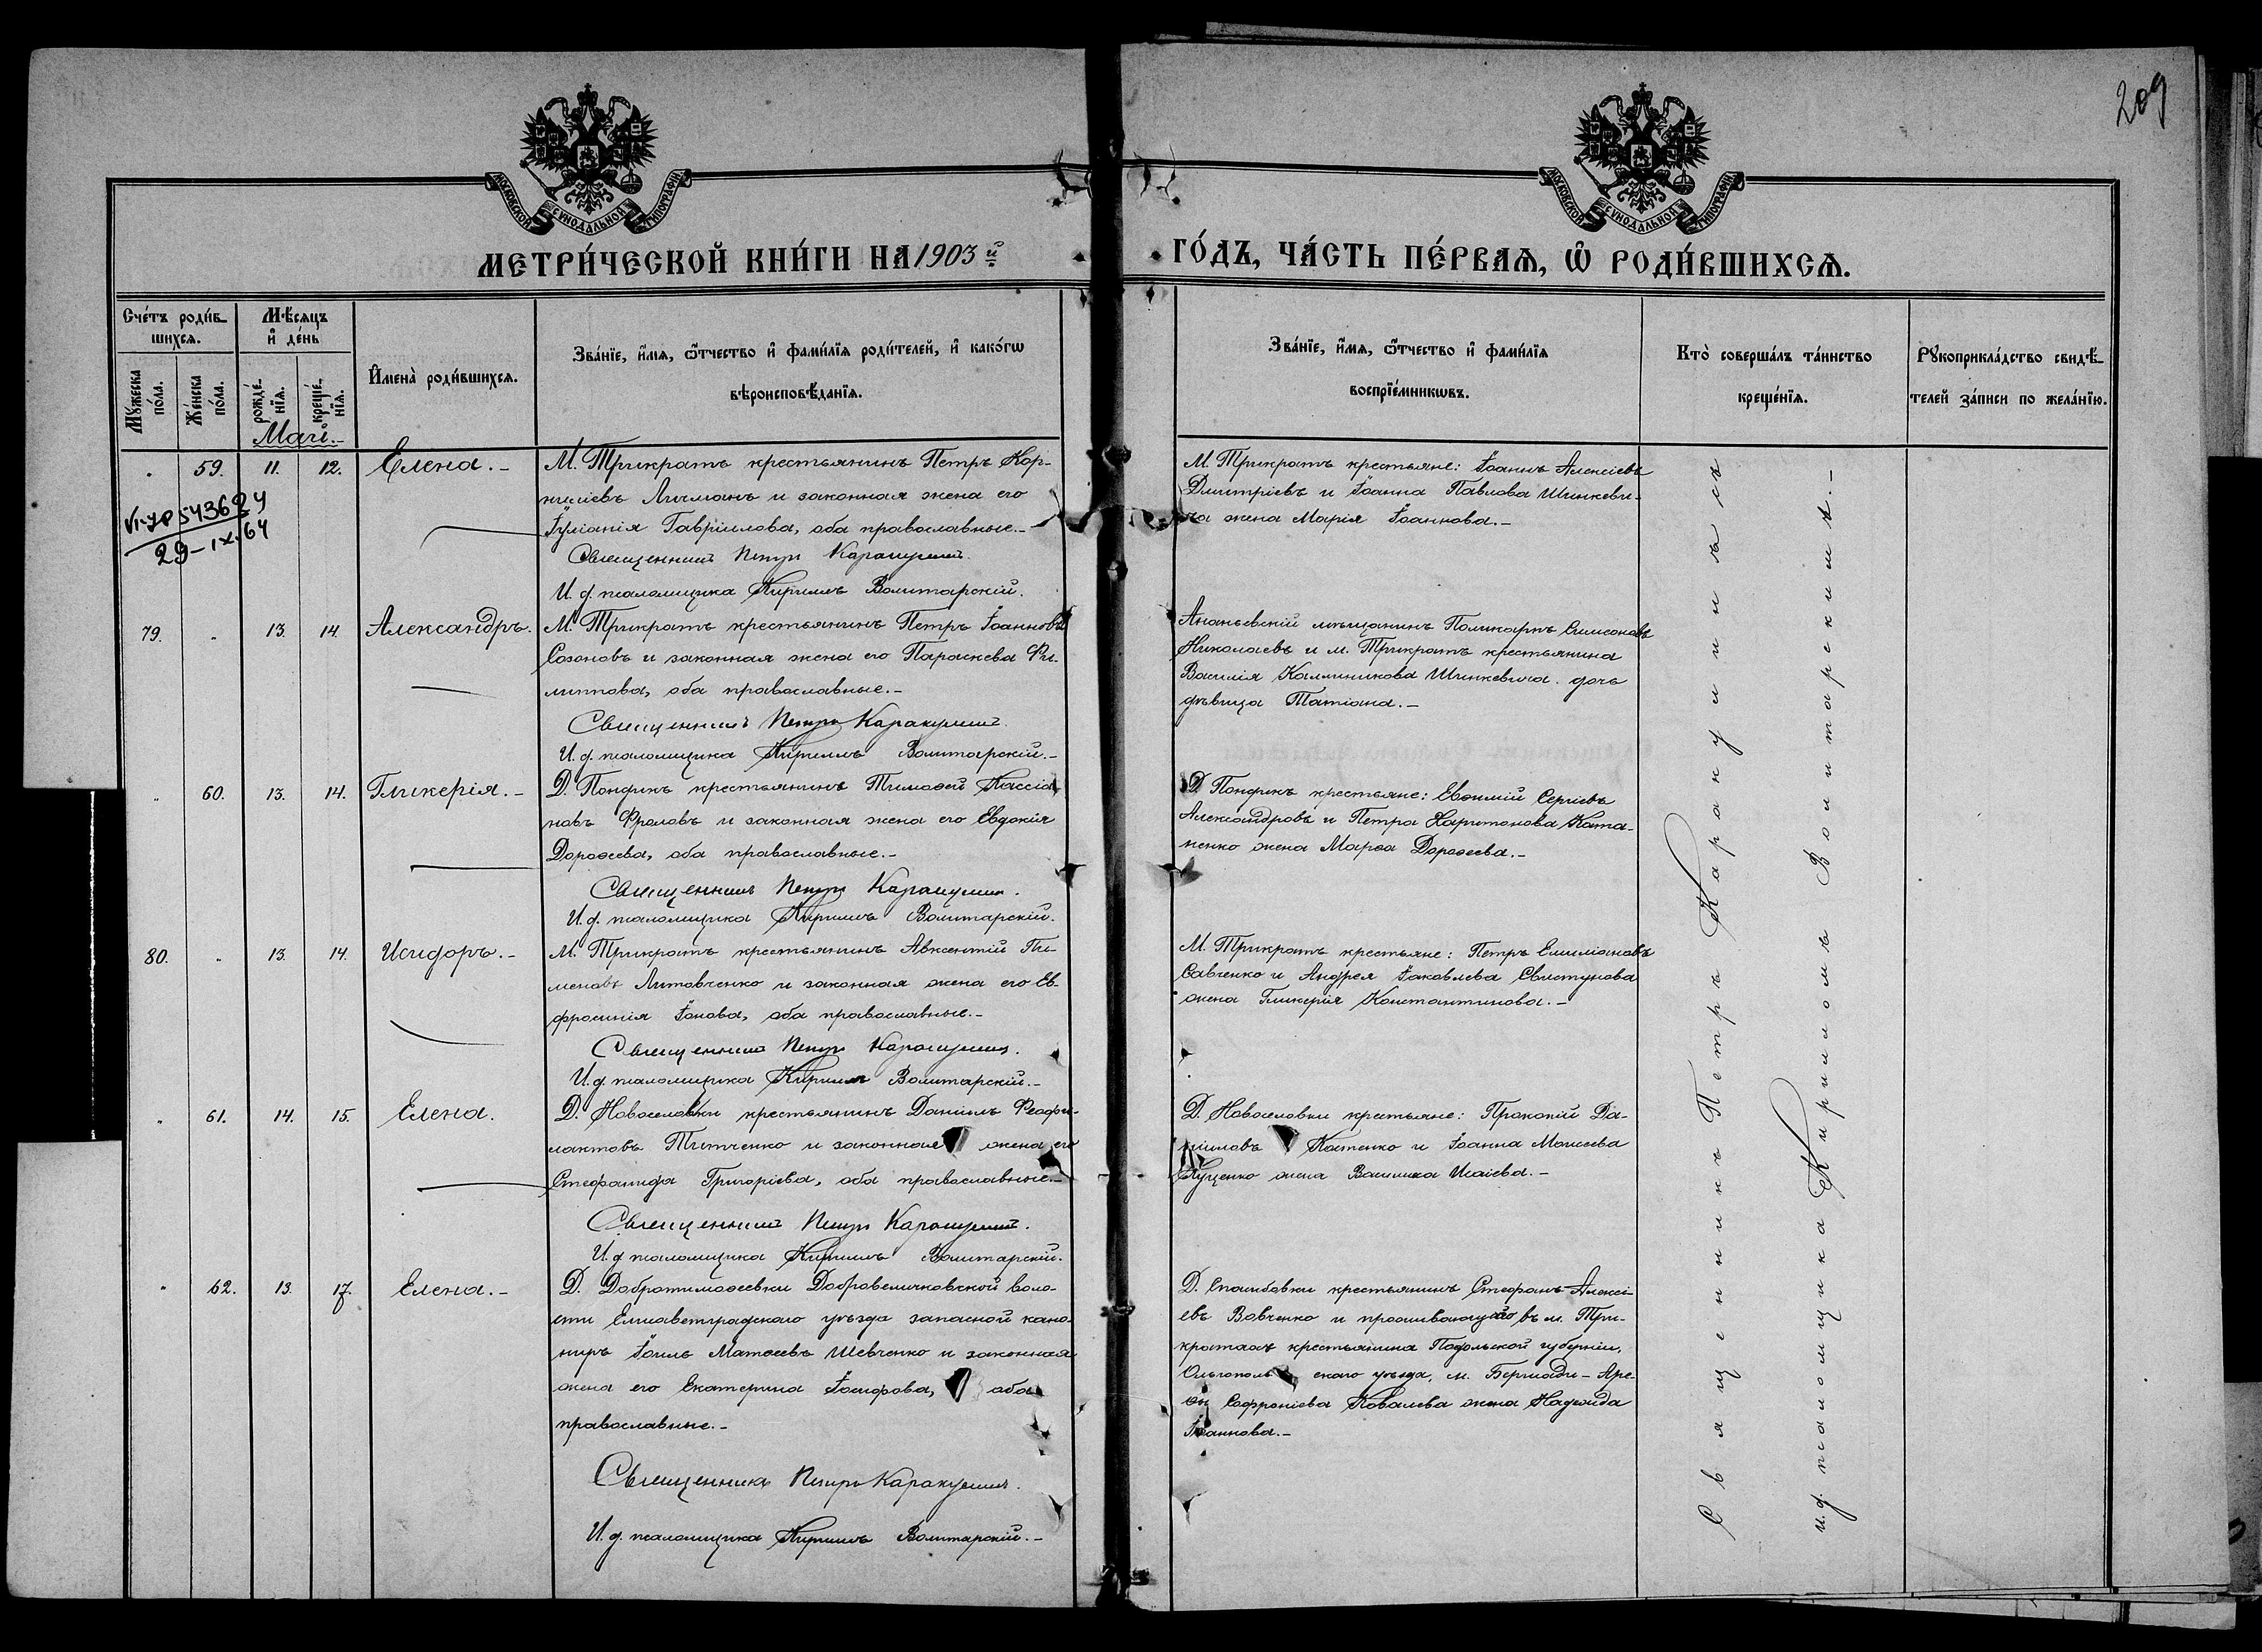 209
МОСКОВСКОЙ СУНОДАЛЬНОЙ ТИПОГРАФІИ
МОСКОВСКОЙ СУНОДАЛЬНОЙ ТИПОГРАФІИ
МЕТРИ́ЧЕСКОЙ КНИ́ГИ НА 1903й
ГО́ДЪ, ЧА́СТЬ ПЕ́РВАѦ, Ѡ҆ РОДИ́ВШИХСѦ.
Сче́тъ роди́в-
шихсѧ.
Мѣ́сѧцъ
и҆ де́нь
Мꙋ́жеска
по́ла.
Же́нска
по́ла.
рожде́-
нїѧ.
креще́-
нїѧ.
И҆мена̀ роди́вшихсѧ.
Зва́нїе, и҆́мѧ, ѻ҆́тчество и҆ фами́лїѧ роди́телей, и҆ како́гѡ
вѣроисповѣ́данїѧ.
Зва́нїе, и҆́мѧ, ѻ҆́тчество и҆ фами́лїѧ
воспрїе́мникѡвъ.
Кто̀ соверша́лъ та́инство
креще́нїѧ.
Рꙋкоприкла́дство свидѣ́-
телей за́писи по жела́нїю.
Маѣ.-
59. 11. 12. Елена.-
М. Трикратъ крестьянинъ Петръ Кор-
ниліевъ Личманъ и законная жена его
Іуліанія Гавріилова, оба православные.-
Священникъ Петръ Каракулинъ.
И. д. псаломщика Кириллъ Волитарскій.
М. Трикратъ крестьяне: Іоаннъ Алексіевъ
Дмитріевъ и Іоанна Павлова Шинкеви-
ча жена Марія Іоаннова.-
543624
29-IX.64
79. 13. 14. Александръ.
М. Трикратъ крестьянинъ Петръ Іоанновъ
Созоновъ и законная жена его Параскева Фи-
липпова, оба православные.-
Священникъ Петръ Каракулинъ.
И. д. псаломщика Кириллъ Волитарскій.-
Ананьевскій мѣщанинъ Поликарпъ Симеоновъ
Николаевъ и м. Трикратъ крестьянина
Василія Каллиникова Шинкевича дочь
дѣвица Татіана.-
60. 13. 14. Гликерія.-
Д. Пондикъ крестьянинъ Тимоѳей Кассіа-
новъ Фроловъ и законная жена его Евдокія
Дороѳеева, оба православные.-
Священникъ Петръ Каракулинъ.
И. д. псаломщика Кириллъ Волитарскій.
Д. Пондикъ крестьяне: Евѳимій Сергіевъ
Александровъ и Петра Харитонова Ката-
ненко жена Марѳа Дороѳеева.-
80. 13. 14. Исидоръ.-
М. Трикратъ крестьянинъ Авксентій Пи-
меновъ Литовченко и законная жена его Ев-
фросинія Іонова, оба православные.-
Священникъ Петръ Каракулинъ.
И. д. псаломщика Кириллъ Волитарскій.-
М. Трикратъ крестьяне: Петръ Емиліановъ
Савченко и Андрея Іаковлева Свистунова
жена Гликерія Константинова.-
61. 14. 15. Елена.
Д. Новоселовки крестьянинъ Даніилъ Феофи-
лактовъ Титченко и законная жена его
Стефанида Григоріева, оба православные.-
Священникъ Петръ Каракулинъ.
И. д. псаломщика Кириллъ Волитарскій.
Д. Новоселовки крестьяне: Прокопій Да-
ніиловъ Костенко и Іоанна Моисеева
Куценко жена Василиса Исаіева.-
62. 13. 17. Елена.-
Д. Добротимоѳеевки Добровеличковской воло-
сти Елисаветградскаго уѣзда запасной кано-
ниръ Іоиль Матѳеевъ Шевченко и законная
жена его Екатерина Іосифова, оба
православные.-
Священникъ Петръ Каракулинъ.
И. д. псаломщика Кириллъ Волитарскій.-
крестьянинъ Стефанъ Алексі-
евъ Вовченко и проживающаго въ м. Три-
кратахъ крестьянина Подольской губерніи,
Ольгопольскаго уѣзда, м. Бершади- Аре-
Софроніева Ковалева жена Надежда
Іоаннова.-
Священникъ Петръ Каракулинъ съ
и. д. псаломщика Кирилломъ Волитарскимъ.-